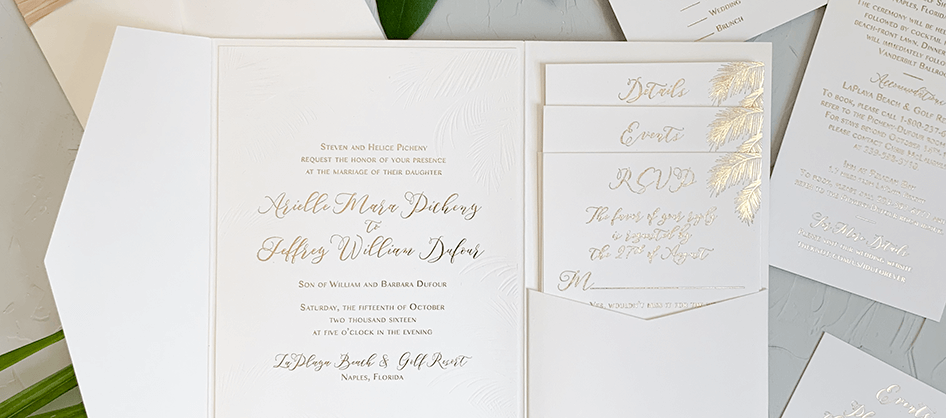 Steven and Helice Picheny
request the honor of your presence
at the marriage of their daughter
Arielle Mara Picheny
to
Jeffrey William Dufour
Son of William and Barbara Dufour
Saturday, the fifteenth of October
two thousand sixteen
at five o'clock in the evening
LaPlaya Beach & Golf Resort
Naples, Florida
Details
Events
RSVP
The favor of your reply
is requested by
the 27th of August
M
Yes, wouldn't miss it for the
Wedding
Brunch
Naples, Florida
The ceremony will be he
followed by cocktail
beach-front lawn. Dinner
will immediately follow
Vanderbilt Ballroo
Accommodations
LaPlaya Beach & Golf Re
To book, please call 1-800-237
refer to the Picheny-Dufour
please contact
To book, please call
Events